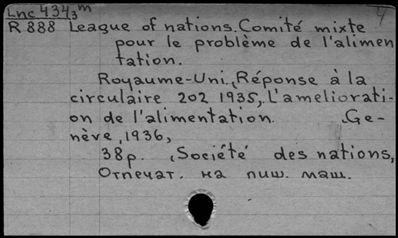 Lnc 4343m
R 888 League of nations. Comité mixte
pour le problème de l'alimen
tation.
Royaume-Uni. Réponse à la
circulaire 202 1935, L'ameliorati-
on de l'alimentation. Ge-
nève, 1936,
38p. Société des nations,
Отпечат. на пиш. маш.